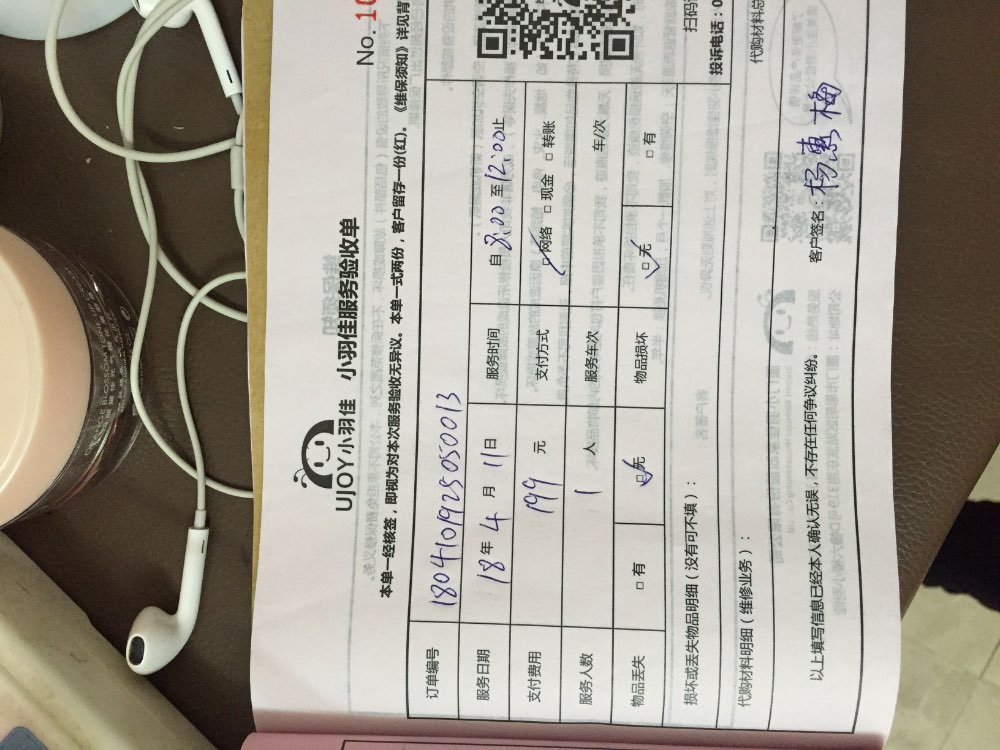 No.10
UJOY小羽佳 小羽佳服务验收单
本单一经核签，即视为对本次服务验收无异议。本单一式两份，客户留存一份(红)。《维保须知》详见背
订单编号 1804101925050013
服务日期 18年4月11日 服务时间 自8:00至12:00止
支付费用 199元 支付方式 □网络 □现金 □转账
服务人数 1人 服务车次 车/次
物品丢失 □有 □无 物品损坏 □无 □有
损坏或丢失物品明细（没有可不填）：
代购材料明细（维修业务）：
扫码
投诉电话：0
代购材料总
以上填写信息已经本人确认无误，不存在任何争议纠纷。 客户签名：杨惠梅